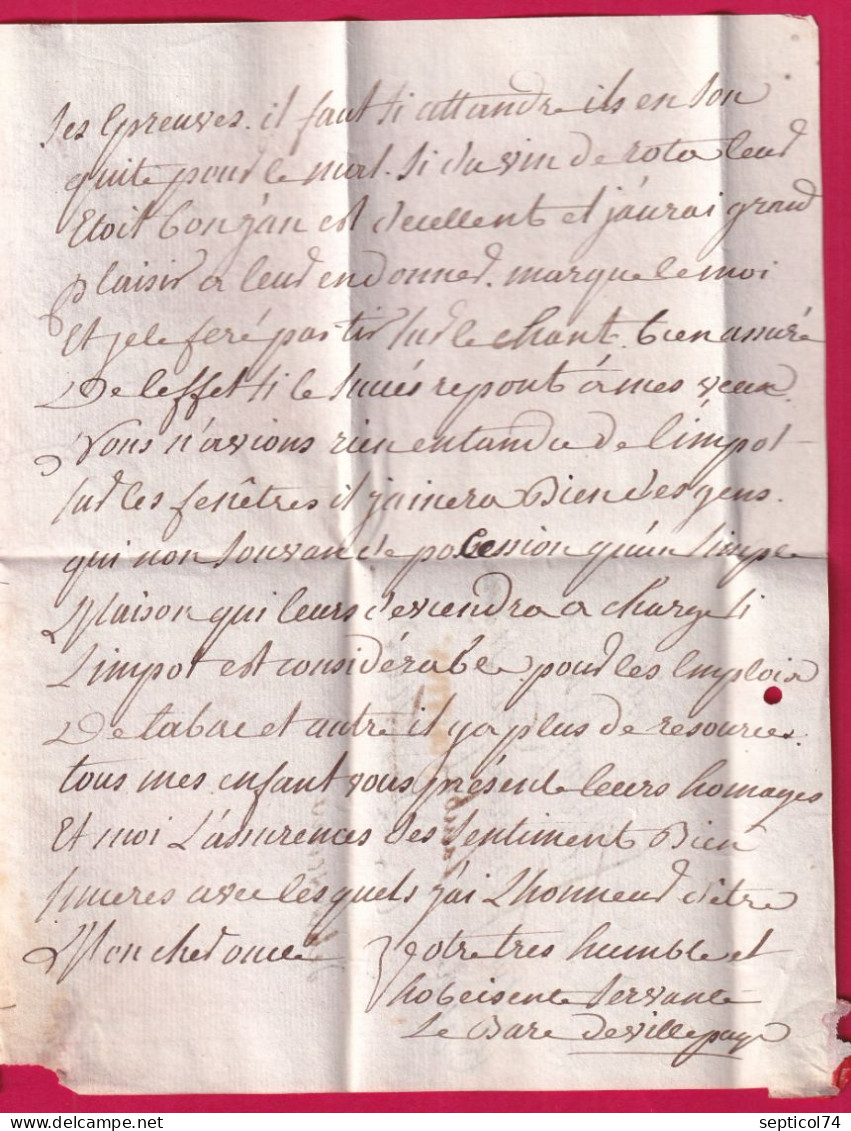 ses Epreuves. il faut si attandre ils en son
quite pour le mal. si du vin de rota leur
Etoit bon j'an est d'ecellent et j'aurai grand
plaisir a leur en donner. marque le moi
Et je le feré partir sur le chant. bien assuré
De l'effet si le succés repont à mes veux.
Nous n'avions rien entandu de l'impot
sur les fenêtres il jainera Bien des gens.
qui non souvan de pocession qu'un simple
Maison qui leurs deviendra a charge si
L'impot est considérable. pour les Emplois
De tabac et autre il y a plus de resources.
tous mes enfant vous présente leurs homages
Et moi L'assurences des sentiment Bien
sinceres avec les quels j'ai L'honneur d'être
Mon cher oncle votre tres humble et
hobeisente servante
Le Bare de villepaye
septicol74